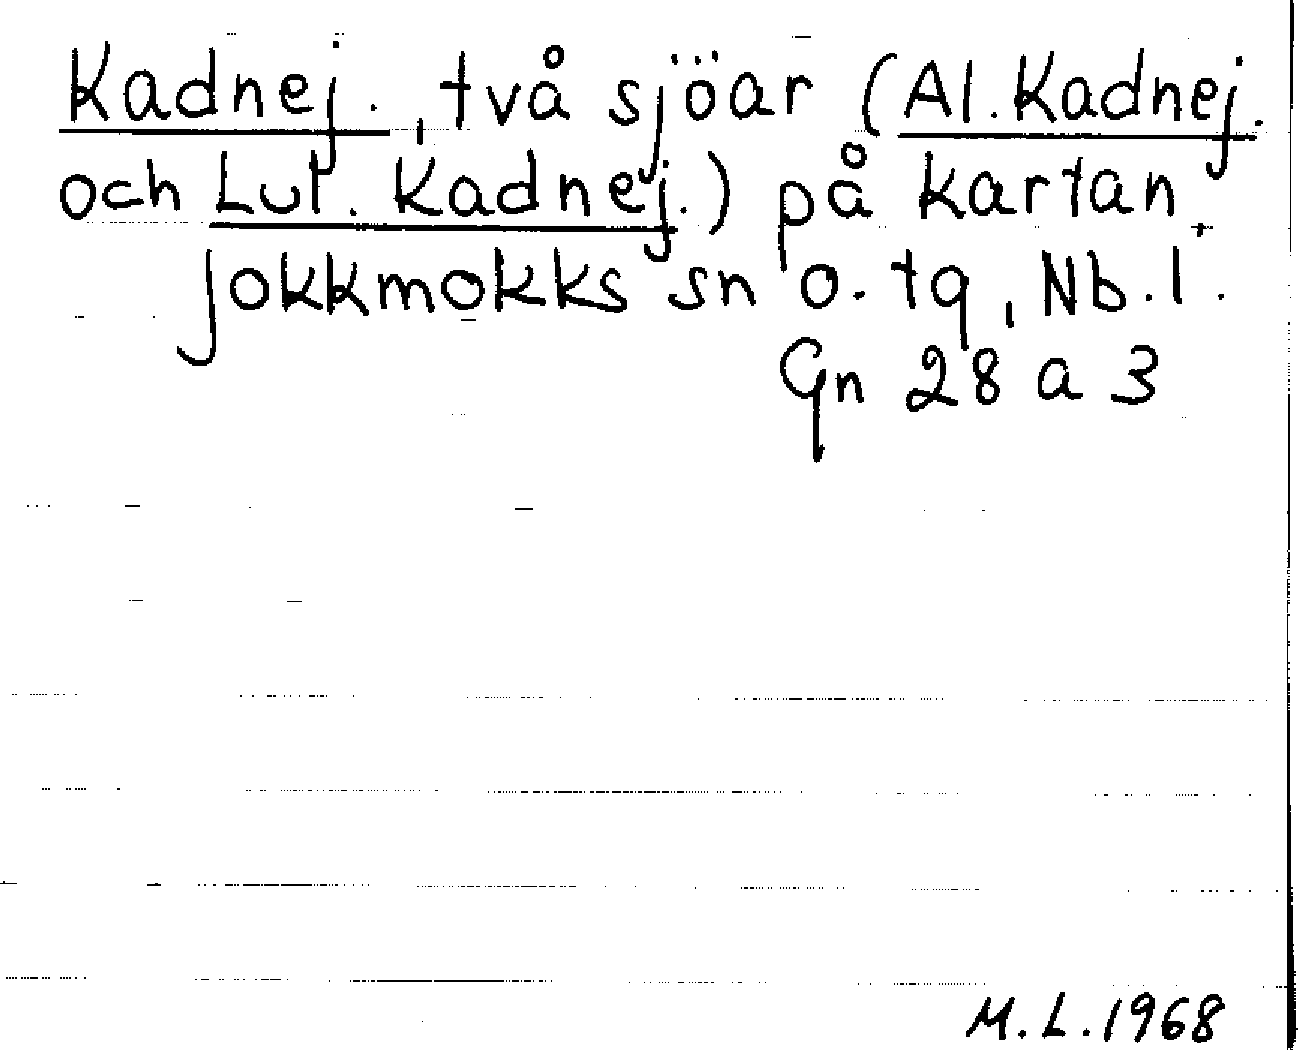 Kadnej., två sjöar (Al. Kadnej.
och Lul. Kadnej.) på kartan.
Jokkmokks sn o. tg, Nb. l.
Gn 28 a 3
M. L. 1968